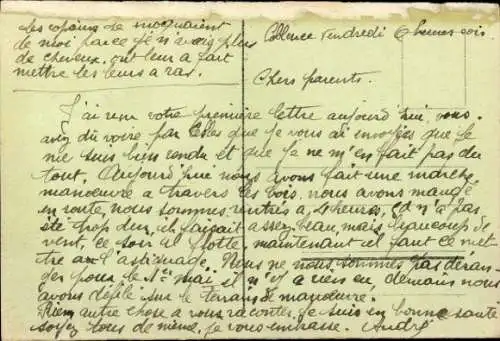 les copains se moquaient
de moi parce je n'avais plus
de cheveux. ont leur a fait
mettre les leurs a ras.
Coblence Vendredi 6 heures soir.
Chers parents.
J'ai reçu votre première lettre aujourd'hui, vous
avez du voire par celles que je vous ai envoyées que je
me suis bien rendu et que je ne m'en fait pas du
tout. Aujourd'hui nous avons fait une marche
manœuvre a travers les bois. nous avons mangé
en route, nous sommes rentrés a 4 heures, ça n'a pas
été trop dur, il faisait assez beau, mais beaucoup de
vent, ce soir il flotte maintenant il faut ce met
tre a l'astiquage. Nous ne nous sommes pas déran
gés pour le 1er mai il n'y a rien eu, demain nous
avons défilé sur le terrain de manœuvre.
Rien autre chose a vous raconter. je suis en bonne santé
soyez tous de même, je vous embrasse. André